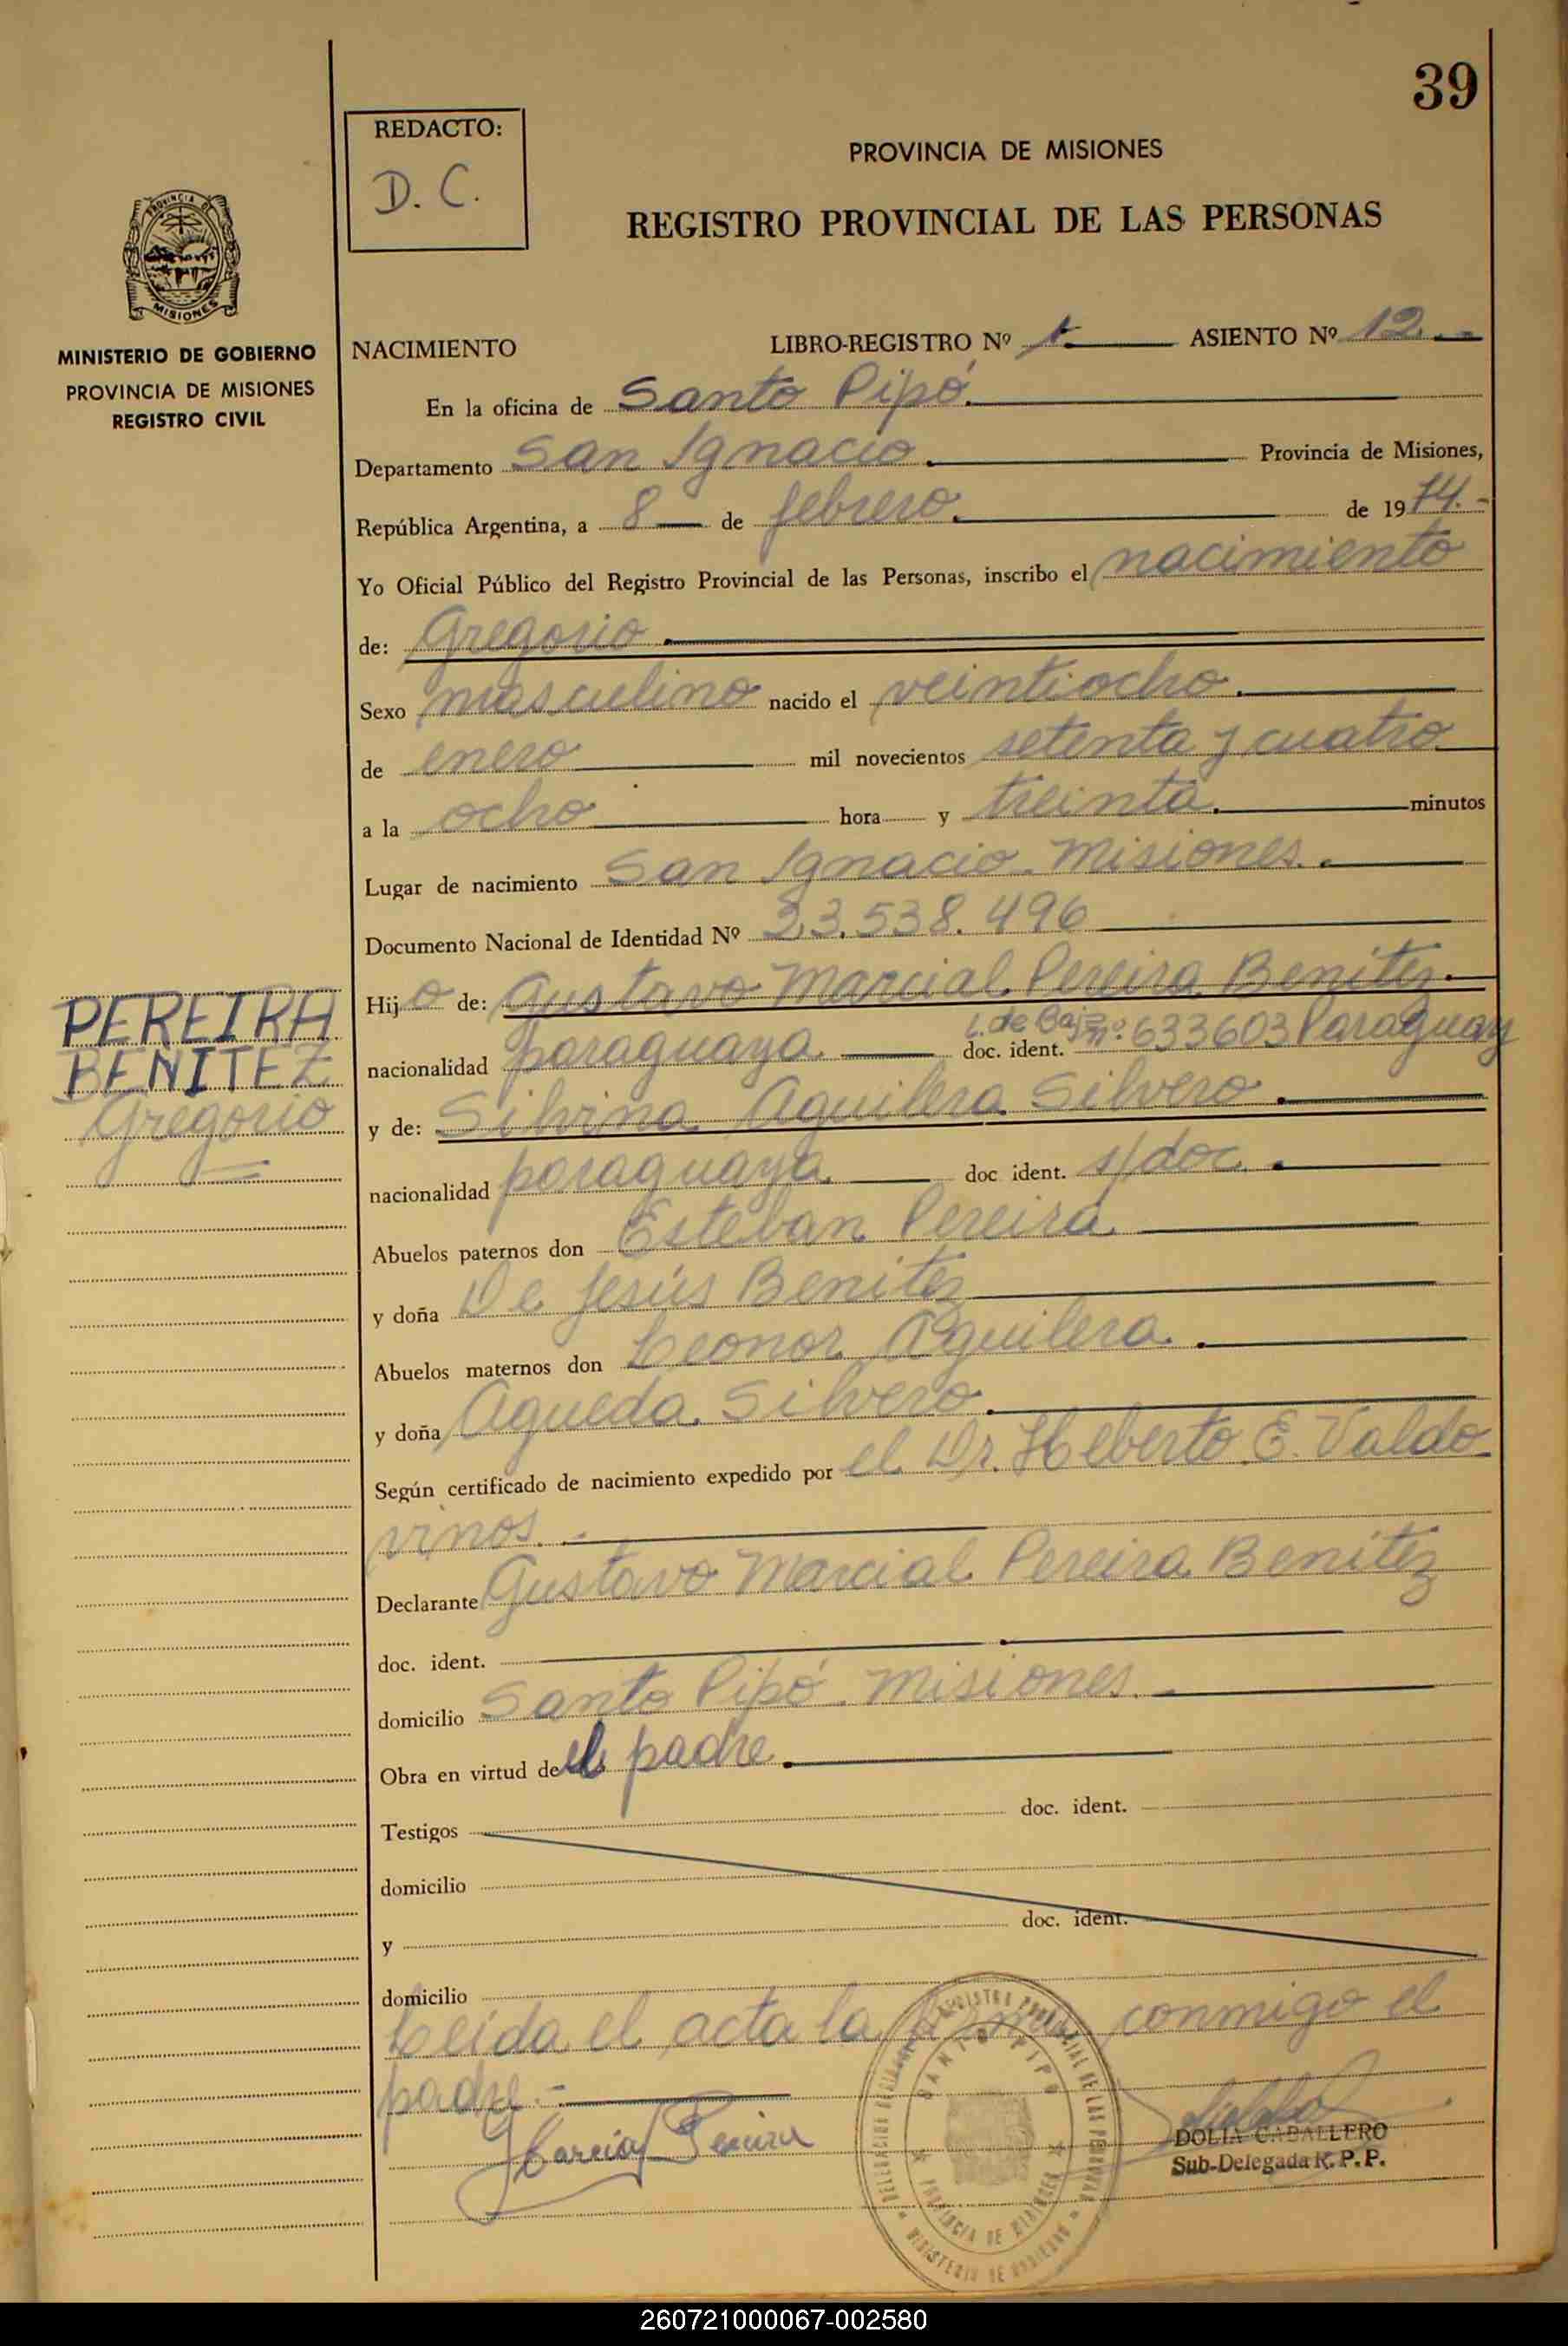 39
REDACTO:
D. C.
PROVINCIA DE MISIONES
REGISTRO PROVINCIAL DE LAS PERSONAS
PROVINCIA DE
MISIONES
MINISTERIO DE GOBIERNO
PROVINCIA DE MISIONES
REGISTRO CIVIL
NACIMIENTO LIBRO-REGISTRO Nº 1 ASIENTO Nº 12
En la oficina de Santo Pipó.
Departamento San Ignacio. Provincia de Misiones,
República Argentina, a 8 de febrero. de 1974.-
Yo Oficial Público del Registro Provincial de las Personas, inscribo el nacimiento
de: Gregorio.
Sexo masculino nacido el veintiocho.
de enero mil novecientos setenta y cuatro
a la ocho hora y treinta. minutos
Lugar de nacimiento San Ignacio. Misiones.
Documento Nacional de Identidad Nº 23.538.496
Hijo de: Gustavo Marcial Pereira Benítez.
nacionalidad paraguaya doc. ident. L. de Baja nº 633603 Paraguay
y de: Silvina Aguilera Silvero.
nacionalidad paraguaya doc ident. s/doc.
Abuelos paternos don Esteban Pereira
y doña De Jesús Benítez
Abuelos maternos don Leonor Aguilera.
y doña Agueda Silvero.
Según certificado de nacimiento expedido por el Dr. Heberto E. Valdo
vinos.-
Declarante Gustavo Marcial Pereira Benítez
doc. ident.
domicilio Santo Pipó. Misiones.
Obra en virtud de el padre.
Testigos doc. ident.
domicilio
y doc. ident.
domicilio
Leída el acta la firma conmigo el
padre.-
PEREIRA
BENITEZ
Gregorio
SANTO PIPO
PROVINCIA DE MISIONES
MINISTERIO DE GOBIERNO
DOLIA CABALLERO
Sub-Delegada R. P. P.
260721000067-002580